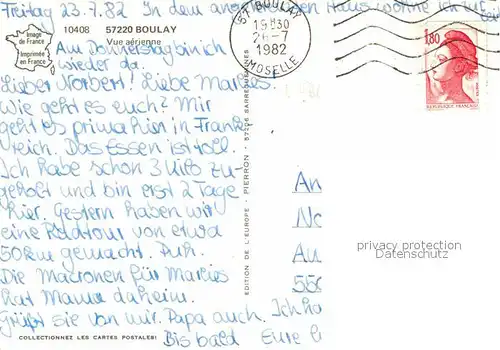 Freitag 23.7.82 In dem Haus wohne ich
Image
de France
Imprimée
en France
10408 57220 BOULAY
Vue aérienne
57 BOULAY
19H30
26-7
1982
MOSELLE
1,80
REPUBLIQUE FRANÇAISE
Am Donnerstag bin ich
wieder da.
Lieber Norbert! Liebe
Wie geht es euch? Mir
geht es prima hier in Frank-
reich. Das Essen ist toll.
Ich habe schon 3 Kilo zu-
geholt und bin erst 2 Tage
hier. Gestern haben wir
eine Radtour von etwa
50km gemacht. Puh.
Die Macronen für
hat Mama daheim.
Grüßt sie von mir. Papa auch. Ich
Bis bald Eure
EDITION DE L'EUROPE - PIERRON - 57206 SARREGUEMINES
An
No
Au
550
privacy protection
Datenschutz
COLLECTIONNEZ LES CARTES POSTALES!